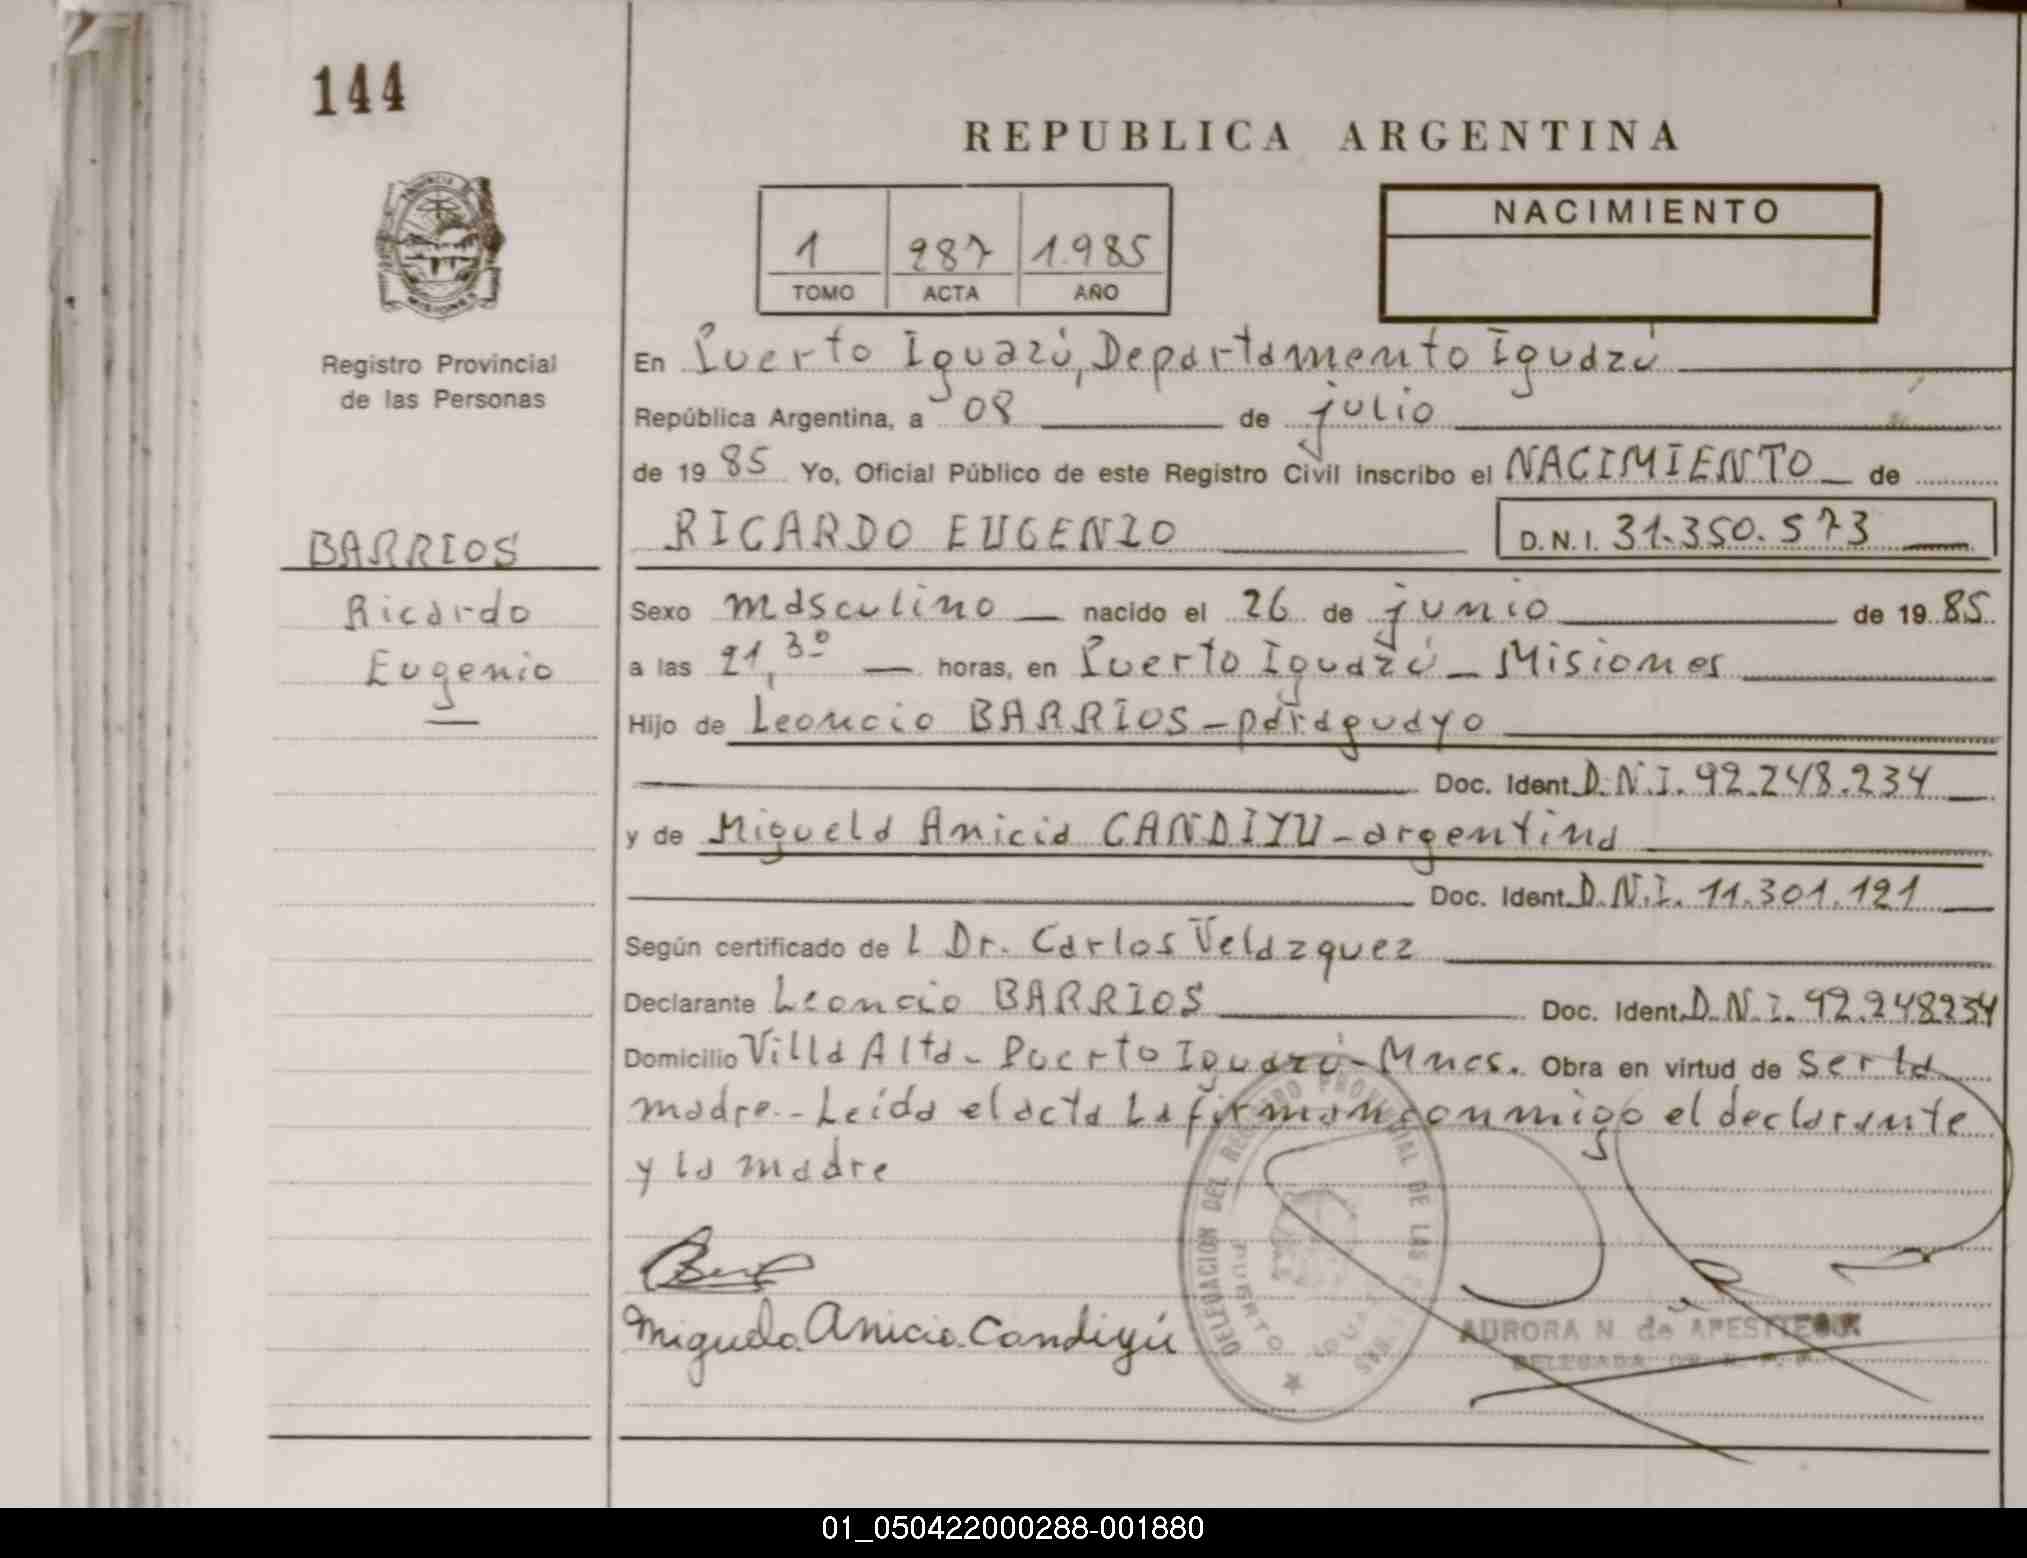 144
REPUBLICA ARGENTINA
PROVINCIA DE
MISIONES
Registro Provincial
de las Personas
1 287 1.985
TOMO ACTA AÑO
NACIMIENTO
En Puerto Iguazú, Departamento Iguazú
República Argentina, a 08 de julio
de 1985 Yo, Oficial Público de este Registro Civil inscribo el NACIMIENTO de
BARRIOS
Ricardo
Eugenio
RICARDO EUGENIO D.N.I. 31.350.573
Sexo masculino nacido el 26 de junio de 1985
a las 21,30 horas, en Puerto Iguazú - Misiones
Hijo de Leoncio BARRIOS - paraguayo
Doc. Ident. D.N.I. 92.248.234
y de Miguela Anicia CANDIYU - argentina
Doc. Ident. D.N.I. 11.301.121
Según certificado de l Dr. Carlos Velazquez
Declarante Leoncio BARRIOS Doc. Ident. D.N.I. 92.248234
Domicilio Villa Alta - Puerto Iguazú - Mnes. Obra en virtud de ser la
madre.- Leída el acta la firman conmigo el declarante
y la madre
Miguela Anicia Candiyú
DELEGACION DEL REGISTRO PROVINCIAL DE LAS
PUERTO IGUAZU
AURORA N. de
DELEGADA
01_050422000288-001880